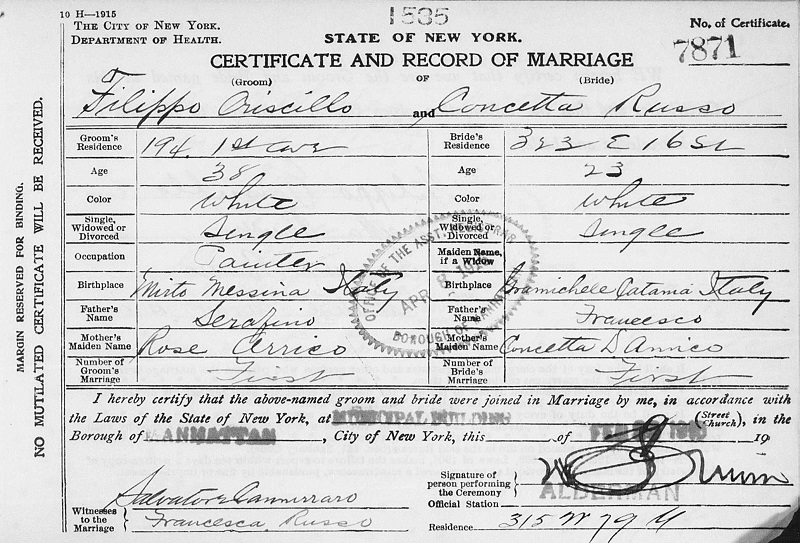 10 H—1915
1585
THE CITY OF NEW YORK.
DEPARTMENT OF HEALTH.
STATE OF NEW YORK.
No. of Certificate.
7871
CERTIFICATE AND RECORD OF MARRIAGE
(Groom) OF (Bride)
Filippo Oriscillo and Concetta Russo
Groom's Residence 194. 1st Ave Bride's Residence 323 E 16 St
Age 38 Age 23
Color White Color White
Single, Widowed or Divorced Single Single, Widowed or Divorced Single
Occupation Painter Maiden Name, if a Widow
Birthplace Mirto Messina Italy Birthplace Gramichele Catania Italy
Father's Name Serafino Father's Name Francesco
Mother's Maiden Name Rose Cerrico Mother's Maiden Name Concetta D'Amico
Number of Groom's Marriage First Number of Bride's Marriage First
OFFICE OF THE ASST. REGISTRAR
APR 8
BOROUGH OF MANHATTAN
I hereby certify that the above-named groom and bride were joined in Marriage by me, in accordance with
the Laws of the State of New York, at MUNICIPAL BUILDING (Street Church), in the
Borough of MANHATTAN, City of New York, this of FEB 19
Signature of person performing the Ceremony
Official Station ALDERMAN
Residence 315 W 79 St
Witnesses to the Marriage Salvatore Cannizzaro
Francesca Russo
MARGIN RESERVED FOR BINDING.
NO MUTILATED CERTIFICATE WILL BE RECEIVED.